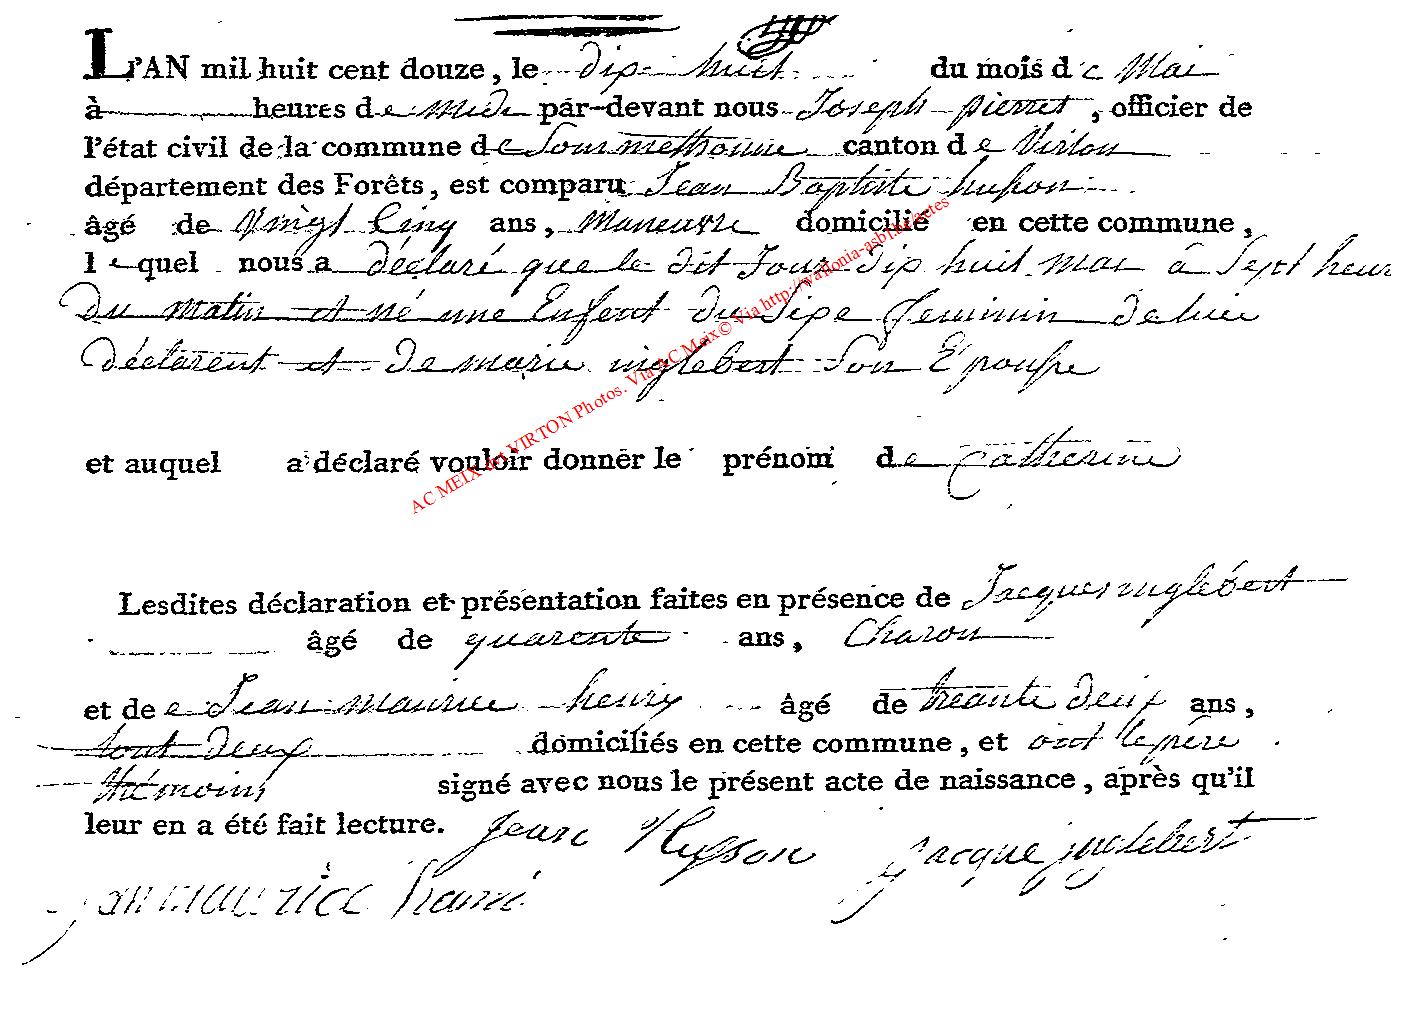 L'AN mil huit cent douze, le dix huit du mois de Mai
à heures de midi par-devant nous Joseph pierret, officier de
l'état civil de la commune de Sommethonne canton de Virton
département des Forêts, est comparu Jean Baptiste husson
âgé de Vingt Cinq ans, Maneuvre domicilié en cette commune,
lequel nous a déclaré que le dit Jour dix huit mai à Sept heur
Du matin est né une Enfent du Sexe feminin de lui
déclarent et de marie inglebert Son Epousse
et auquel a déclaré vouloir donner le prénom de Catherine
AC MEIX dvt VIRTON Photos. Via AC Meix© Via http://wallonia-asbl.be/actes
Lesdites déclaration et présentation faites en présence de Jacques inglebert
âgé de quarente ans, Charon
et de Jean maurice henry âgé de treante deux ans,
tout deux domiciliés en cette commune, et ont le père
thémoins signé avec nous le présent acte de naissance, après qu'il
leur en a été fait lecture. Jean Husson Jacque jnglebert
jan maurice hanri